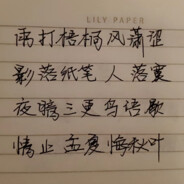 LILY PAPER
雨打梧桐风萧涩
影落纸笔人落寞
夜鸣三更鸟语歇
情止孟夏悔秋叶